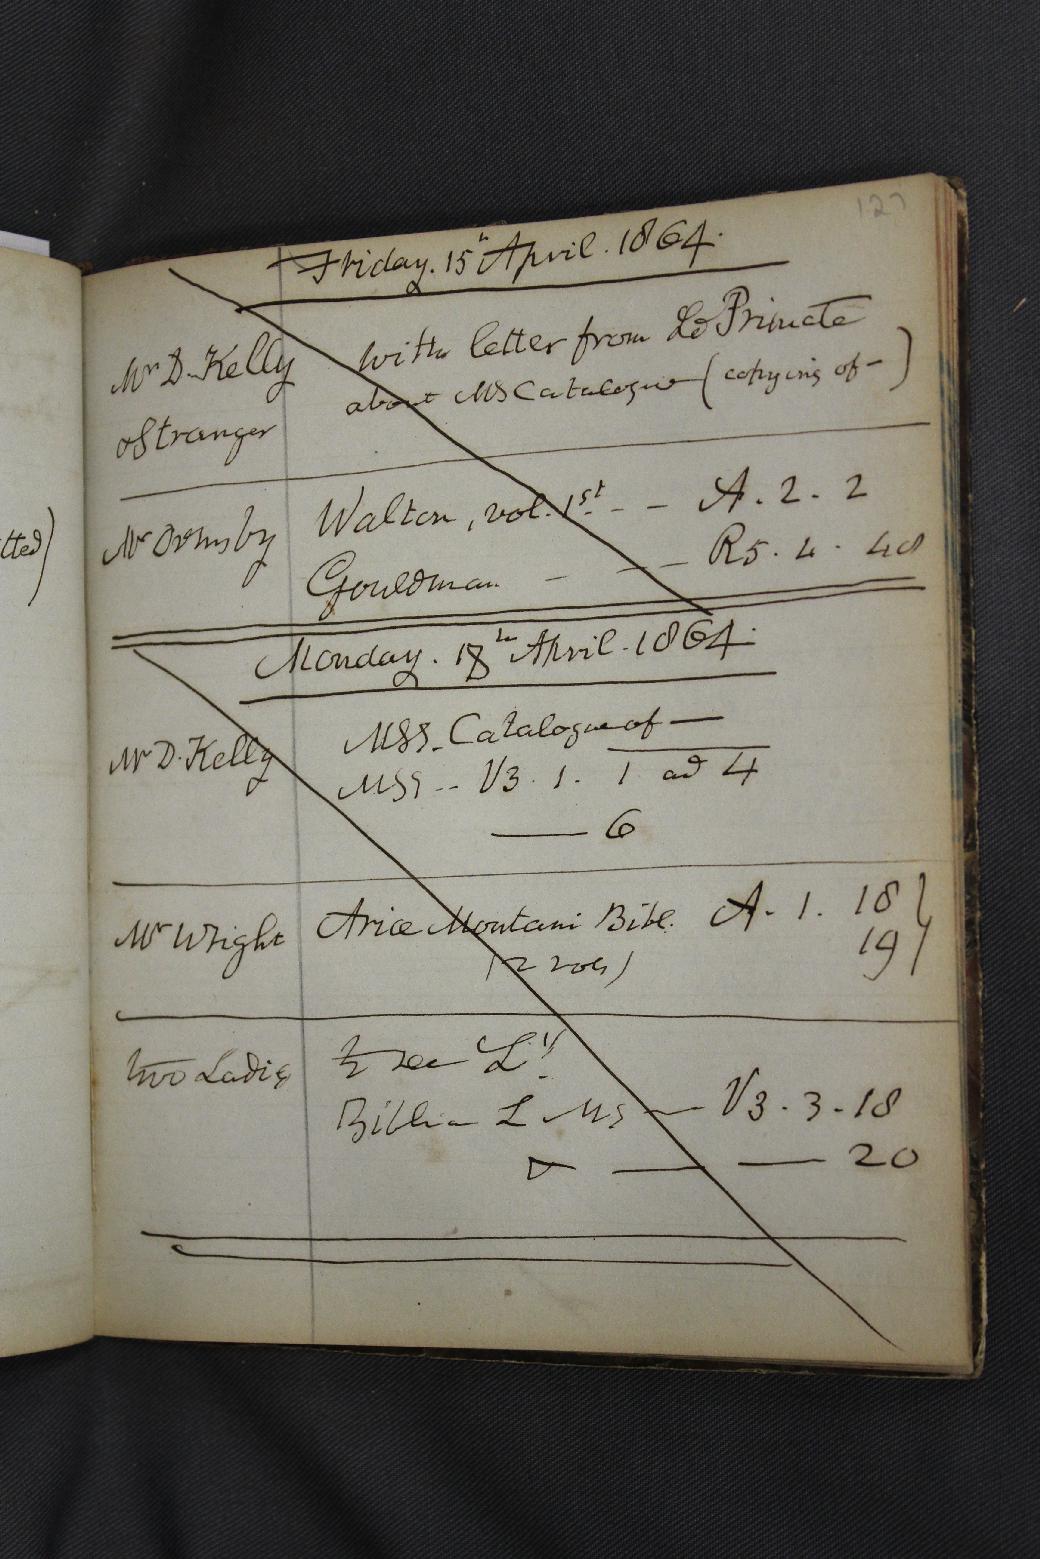 127
tted)
Friday. 15th April. 1864.
Mr D. Kelly with letter from Ld Primate
& Stranger about MS Catalogue (copying of —)
Mr Ormsby Walton, vol. 1st. - — A. 2. 2
Gouldman - — — R5. 4. 48
Monday. 18th April. 1864.
Mr D. Kelly MSS. Catalogue of —
MSS -- V3. 1. 1 ad 4
— 6
Mr Wright Ariæ Montani Bibl. A. 1. 18 }
(2 vols) 19 }
two Ladies to see Ly.
Biblia L MS — V3. 3. 18
— — 20